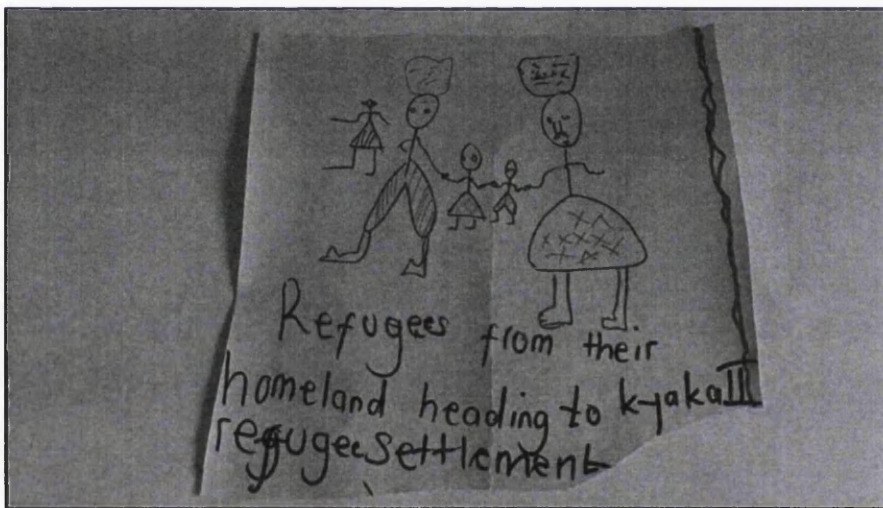 Refugees from their
homeland heading to kyaka II
refugee settlement